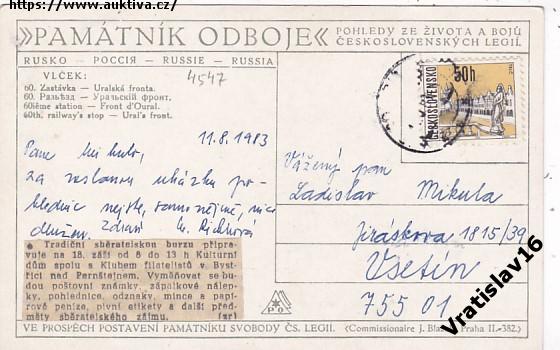 https://www.auktiva.cz/
»PAMÁTNÍK ODBOJE«
POHLEDY ZE ŽIVOTA A BOJŮ
ČESKOSLOVENSKÝCH LEGIÍ.
RUSKO — РОССІЯ — RUSSIE — RUSSIA
VLČEK:
4547
60. Zastávka — Uralská fronta.
60. Разъѣзд — Уральскій фронт.
60ième station — Front d'Oural.
60th. railway's stop — Ural's front.
ČESKOSLOVENSKO
50h
11.8.1983
Pane Mikulo,
za zaslanou ukázku po-
hlednic nejste, samozřejmě, nic
dlužen. Zdraví
Vážený pan
Ladislav Mikula
Jiráskova 1815/39
Vsetín
755 01
● Tradiční sběratelskou burzu připra-
vuje na 18. září od 8 do 13 h Kulturní
dům spolu s Klubem filatelistů v Byst-
řici nad Pernštejnem. Vyměňovat se bu-
dou poštovní známky, zápalkové nálep-
ky, pohlednice, odznaky, mince a papí-
rové peníze, pivní etikety a další před-
měty sběratelského zájmu. (sr)
PO
VE PROSPĚCH POSTAVENÍ PAMÁTNÍKU SVOBODY ČS. LEGIÍ.
(Commissionaire J. Praha II.-382.)
Vratislav16